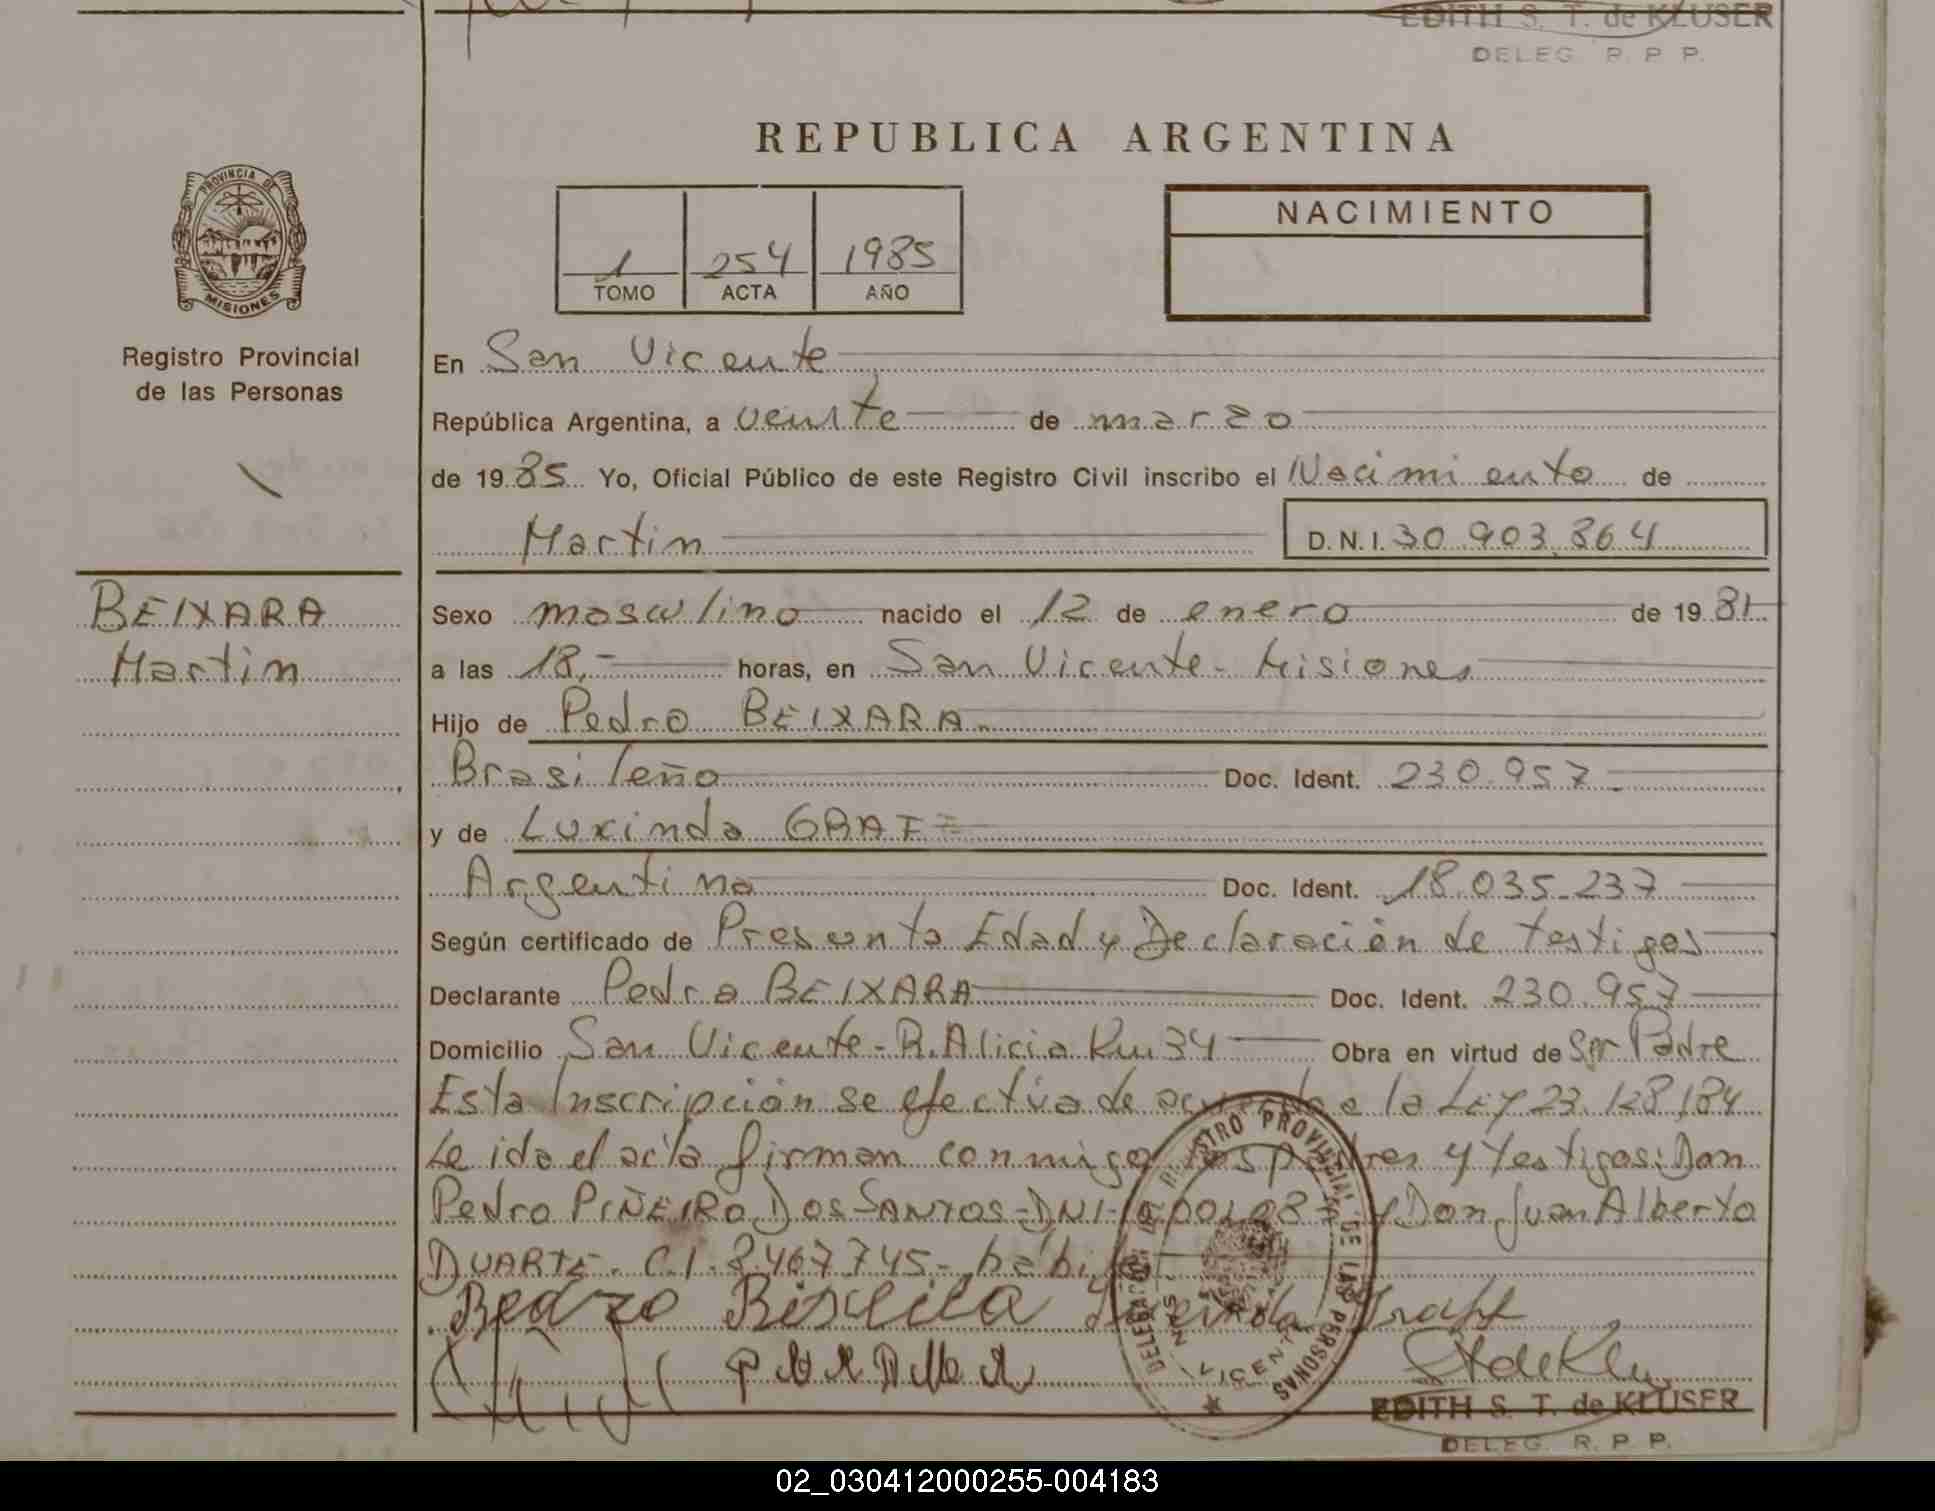 EDITH S. T. de KLUSER
DELEG. R. P. P.
REPUBLICA ARGENTINA
PROVINCIA DE
MISIONES
Registro Provincial
de las Personas
1 254 1985
TOMO ACTA AÑO
NACIMIENTO
En San Vicente
República Argentina, a veinte de marzo
de 19 85 Yo, Oficial Público de este Registro Civil inscribo el Nacimiento de
Martin D.N.I. 30.903.864
BEIXARA
Martin
Sexo masculino nacido el 12 de enero de 19 81
a las 18,- horas, en San Vicente - Misiones
Hijo de Pedro BEIXARA.
Brasileño Doc. Ident. 230.957
y de Luxinda
Argentina Doc. Ident. 18.035.237
Según certificado de Presunta Edad y Declaración de testigos
Declarante Pedro BEIXARA Doc. Ident. 230.957
Domicilio San Vicente - R. Alicia Km 34 Obra en virtud de Ser Padre
Esta Inscripción se efectua de acuerdo a la LEY 23.128/84
Leida el acta firman conmigo los padres y testigos: Don
Pedro PIÑEIRO DOS SANTOS - DNI y Don Juan Alberto
DUARTE. C.I. 3467745 -
REGISTRO PROVINCIAL DE LAS PERSONAS
EDITH S. T. de KLUSER
DELEG. R. P. P.
02_030412000255-004183